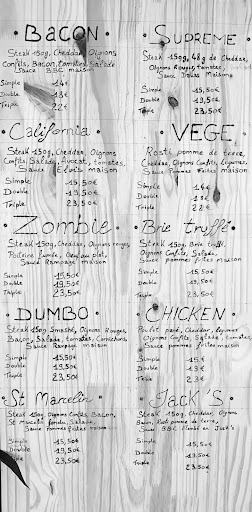 • BACON •
Steak 150g, Cheddar, Oignons
Confits, Bacon, tomates, Salade
Sauce BBC maison
Simple 14€
Double 18€
Triple 22€
• California •
Steak 150g, Cheddar, Oignons
Confits, Salade, Avocat, tomates,
Sauce Elvis maison
Simple 15,50€
Double 19,50€
Triple 23,50€
• Zombie •
Steak 150g, Cheddar, Oignons rouges,
Poitrine fumée, Oeuf au plat,
Sauce Rampage maison
Simple 15,50€
Double 19,50€
Triple 23,50€
• DUMBO •
Steak 150g Smashé, Oignons Rouges,
Bacon, Salade, tomates, Cornichons,
Sauce Rampage maison
Simple 15,50€
Double 19,50€
Triple 23,50€
• St Marcelin •
Steak 150g, Oignons Confits, Bacon,
St Marcelin fondu, Salade,
Sauce Pommes frites maison
Simple 15,50€
Double 19,50€
Triple 23,50€
• SUPREME •
Steak 150g, 48g de Cheddar,
Oignons Rouges, tomates,
Sauce Dallas Maison
Simple 15,50€
Double 19,50€
Triple 23,50€
• VEGE •
Rosti pomme de terre,
Cheddar, Oignons Confits, légumes,
Sauce Pommes frites maison
Simple 14€
Double 18€
Triple 22€
• Brie truffé •
Steak 150g, Brie truffé
Oignons Confits, Salade,
Sauce pommes frites maison
Simple 15,50€
Double 19,50€
Triple 23,50€
• CHICKEN •
Poulet pané, Cheddar, légumes
Oignons Confits, Salade, tomates,
Sauce pommes frites maison
Simple 15€
Double 19€
Triple 23€
• Jack'S •
Steak 150g, Cheddar, Oignons
Bacon, Rosti pomme de terre,
Sauce BBC au Jack's
Simple 15,50€
Double 19,50€
Triple 23,50€